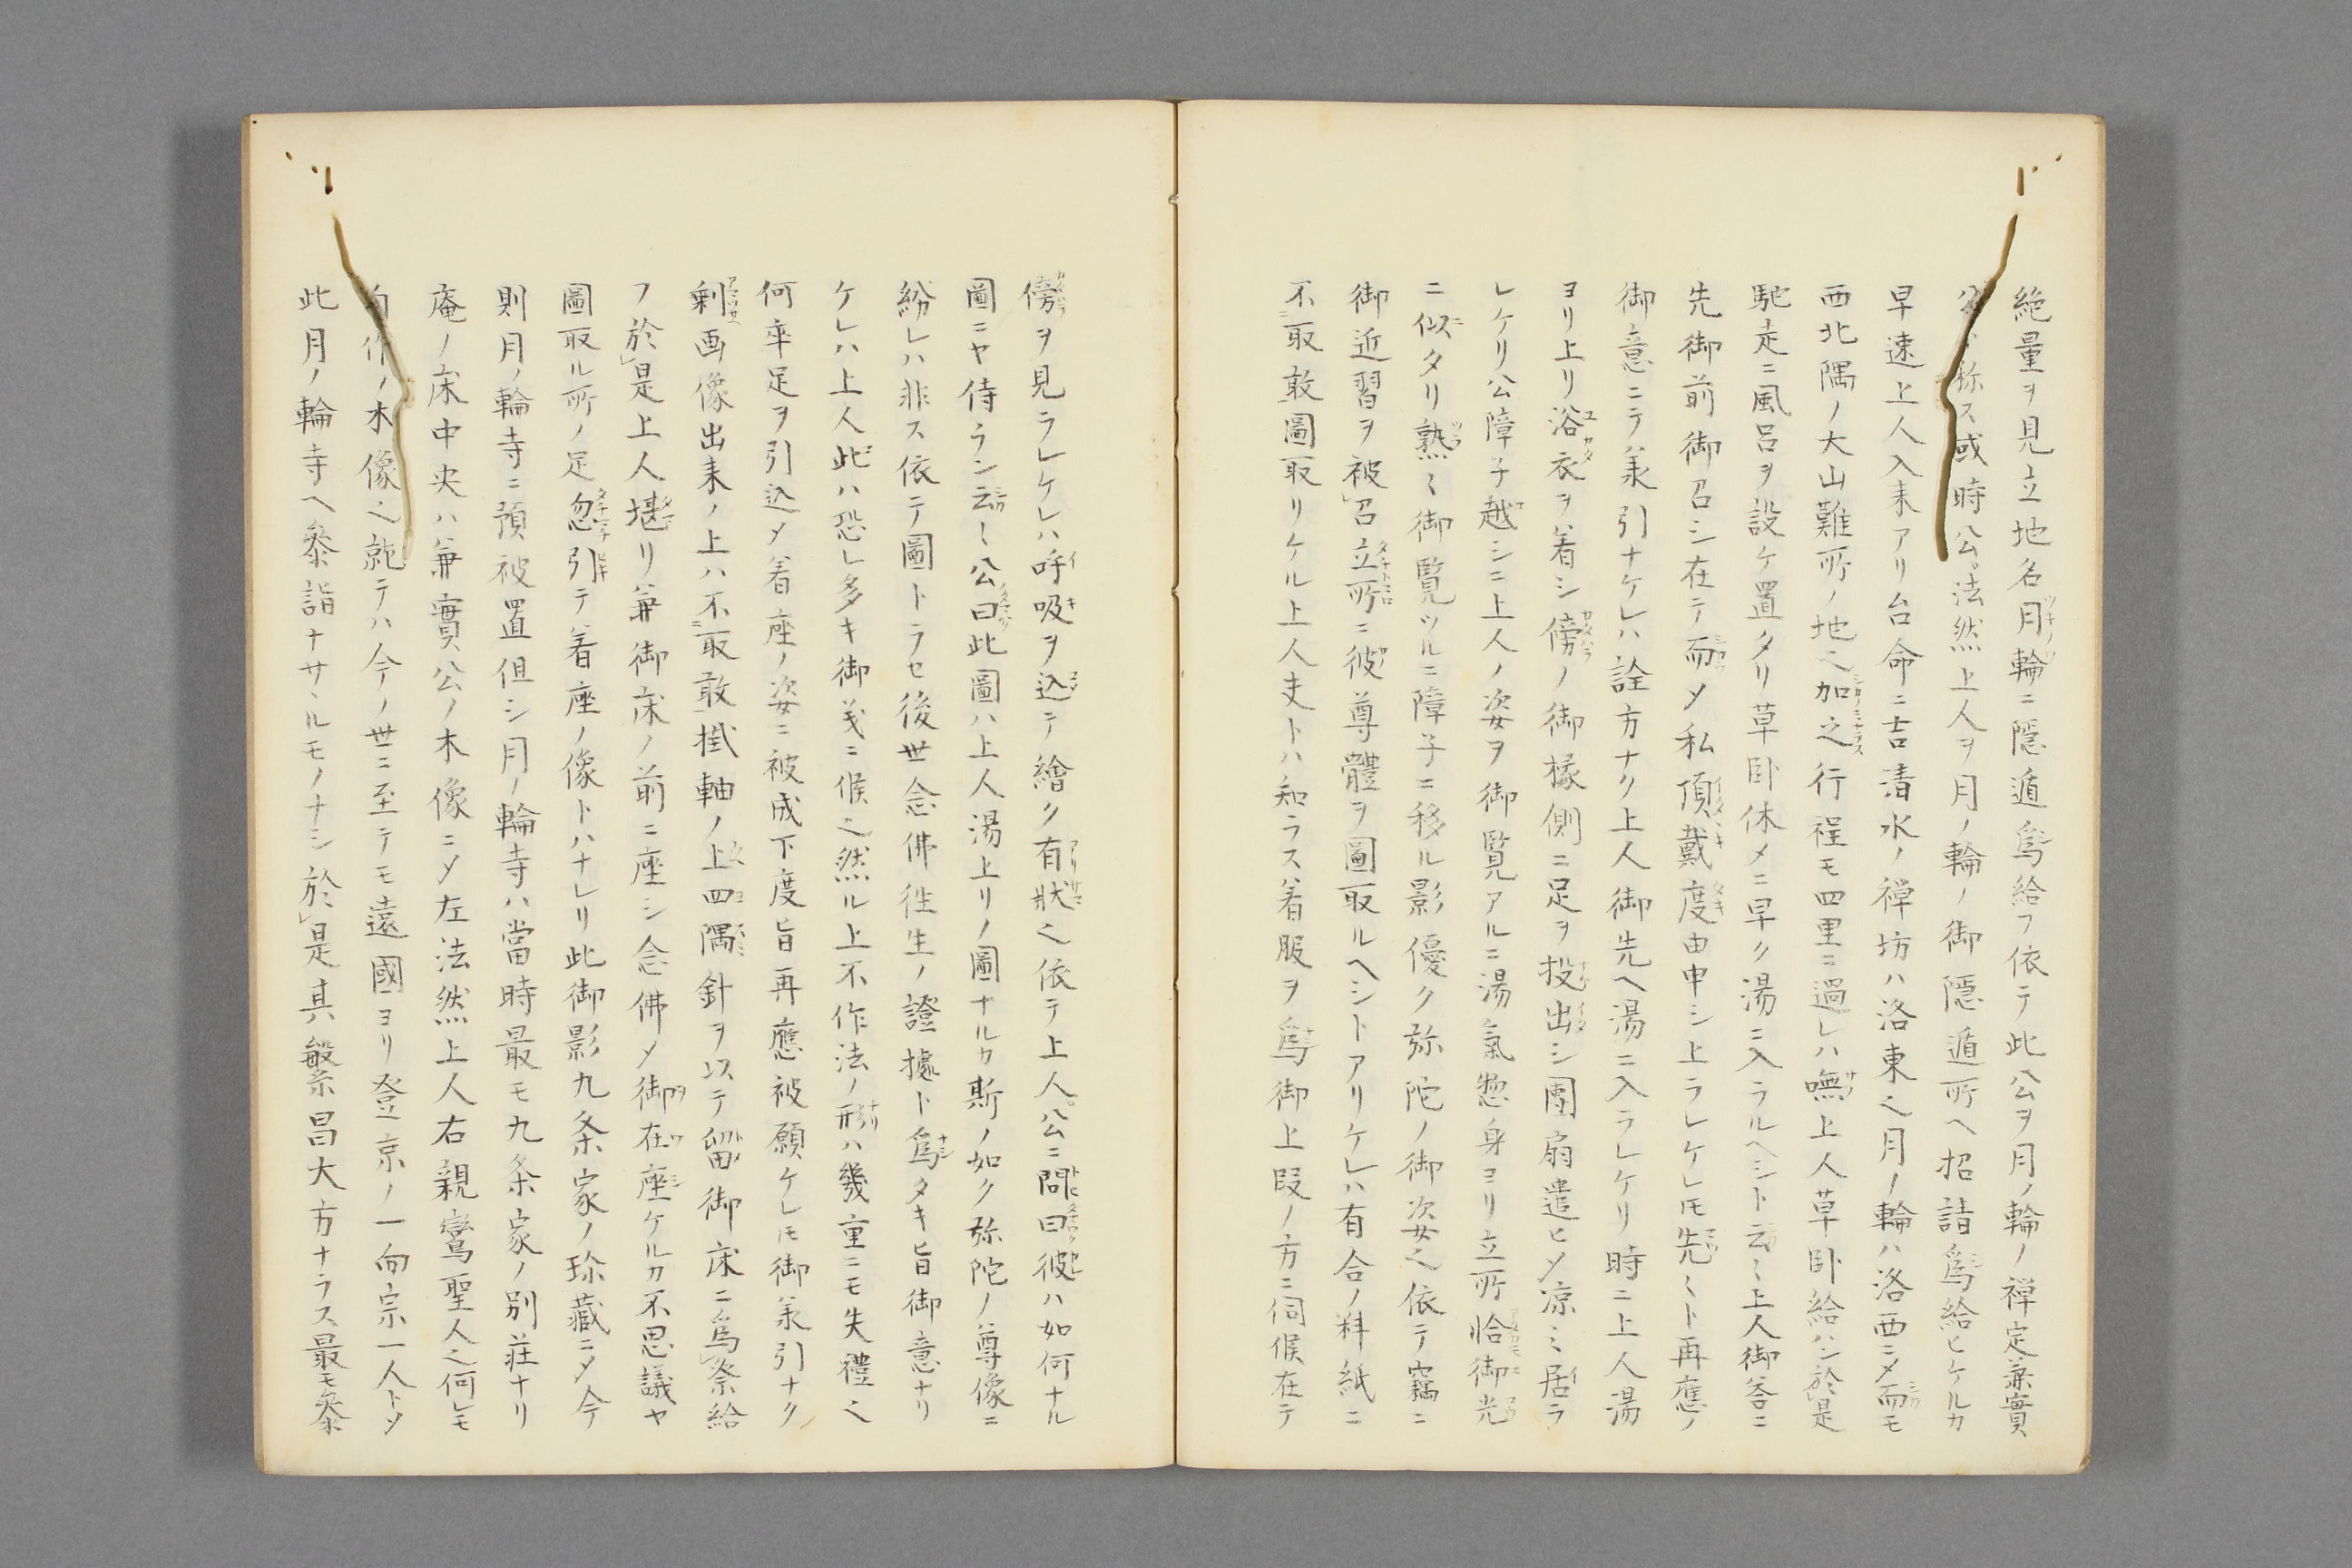 絶量ヲ見立地名月輪ニ隠遁爲給フ依テ此公ヲ月ノ輪ノ禅定兼實
公ト称ス或時公法然上人ヲ月ノ輪ノ御隠遁所ヘ招請爲給ヒケルカ
早速上人入来アリ台命ニ吉清水ノ禅坊ハ洛東之月ノ輪ハ洛西ニメ而モ
西北隅ノ大山難所ノ地之加之行程モ四里ニ過レハ嘸上人草臥給ハン於是
馳走ニ風呂ヲ設ケ置タリ草臥休メニ早ク湯ニ入ラルヘシト云〻上人御答ニ
先御前御召シ在テ而メ私頂戴度由申シ上ラレケレ𪜈先〻ト再應ノ
御意ニテ美引ナケレハ詮方ナク上人御先ヘ湯ニ入ラレケリ時ニ上人湯
ヨリ上リ浴衣ヲ着シ傍ノ御椽側ニ足ヲ投出シ團扇遣ヒメ凉ミ居ラ
レケリ公障子越シニ上人ノ姿ヲ御覧アルニ湯氣惣身ヨリ立所恰御光
ニ似タリ熟〻御覧ツルニ障子ニ移ル影優ク弥陀ノ御姿之依テ竊ニ
御近習ヲ被召立所ニ彼尊體ヲ圖取ルヘシトアリケレハ有合ノ料紙ニ
不取敢圖取リケル上人夫トハ知ラス着服ヲ爲御上段ノ方ニ伺候在テ
傍ヲ見ラレケレハ呼吸ヲ込テ繪ク有狀之依テ上人公ニ問曰彼ハ如何ナル
圖ニヤ侍ラン云〻公曰此圖ハ上人湯上リノ圖ナルカ斯ノ如ク弥陀ノ尊像ニ
紛レハ非ス依テ圖トラセ後世念佛徃生ノ證據ト爲タキ旨御意ナリ
ケレハ上人此ハ恐レ多キ御義ニ候之然ル上不作法ノ形ハ幾重ニモ失禮之
何卒足ヲ引込メ着座ノ姿ニ被成下度旨再應被願ケレ𪜈御美引ナク
剰画像出来ノ上ハ不取敢掛軸ノ上四隅針ヲ以テ留御床ニ爲祭給
フ於是上人堪リ兼御床ノ前ニ座シ念佛メ御在座ケルカ不思議ヤ
圖取ル所ノ足忽引テ着座ノ像トハナレリ此御影九条家ノ珎藏ニメ今
則月ノ輪寺ニ預被置但シ月ノ輪寺ハ當時最モ九条家ノ別荘ナリ
庵ノ床中央ハ兼實公ノ木像ニメ左法然上人右親鸞聖人之何レモ
自作ノ木像之就テハ今ノ世ニ至テモ遠國ヨリ登京ノ一向宗一人トメ
此月ノ輪寺ヘ叅詣ナサヽルモノナシ於是其繁昌大方ナラス最モ叅